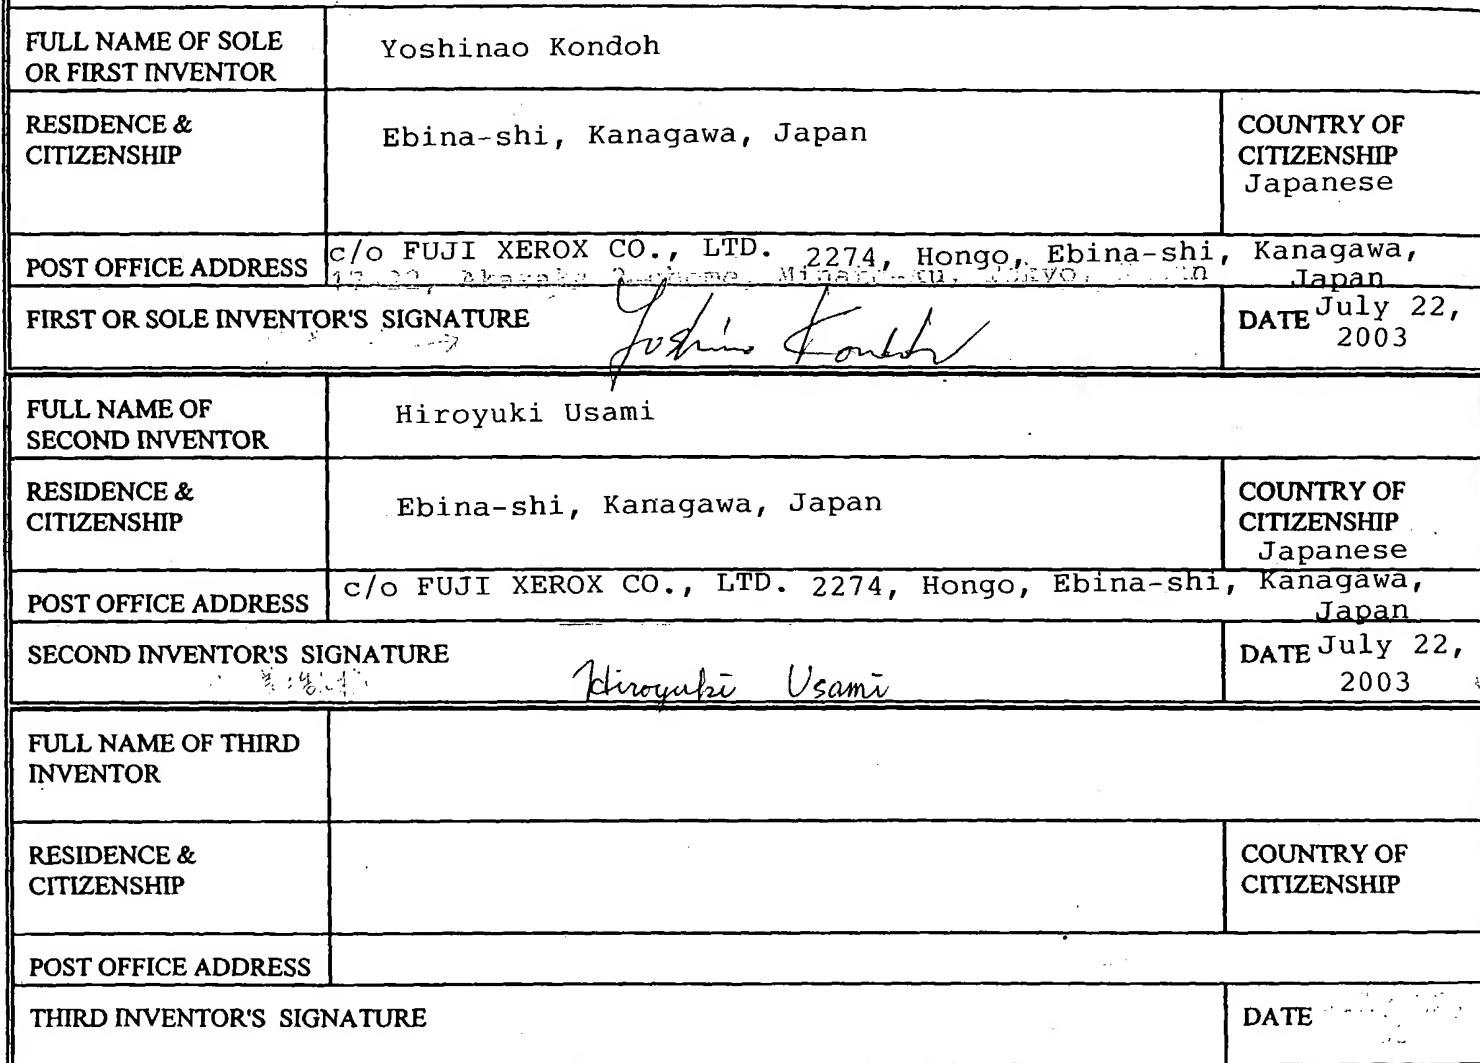 FULL NAME OF SOLE
OR FIRST INVENTOR
Yoshinao Kondoh
RESIDENCE &
CITIZENSHIP
Ebina-shi, Kanagawa, Japan
COUNTRY OF
CITIZENSHIP
Japanese
POST OFFICE ADDRESS
c/o FUJI XEROX CO., LTD. 2274, Hongo, Ebina-shi, Kanagawa,
Japan
FIRST OR SOLE INVENTOR'S SIGNATURE
Kondoh
DATE July 22,
2003
FULL NAME OF
SECOND INVENTOR
Hiroyuki Usami
RESIDENCE &
CITIZENSHIP
Ebina-shi, Kanagawa, Japan
COUNTRY OF
CITIZENSHIP
Japanese
POST OFFICE ADDRESS
c/o FUJI XEROX CO., LTD. 2274, Hongo, Ebina-shi, Kanagawa,
Japan
SECOND INVENTOR'S SIGNATURE
Hiroyuki Usami
DATE July 22,
2003
FULL NAME OF THIRD
INVENTOR
RESIDENCE &
CITIZENSHIP
COUNTRY OF
CITIZENSHIP
POST OFFICE ADDRESS
THIRD INVENTOR'S SIGNATURE
DATE